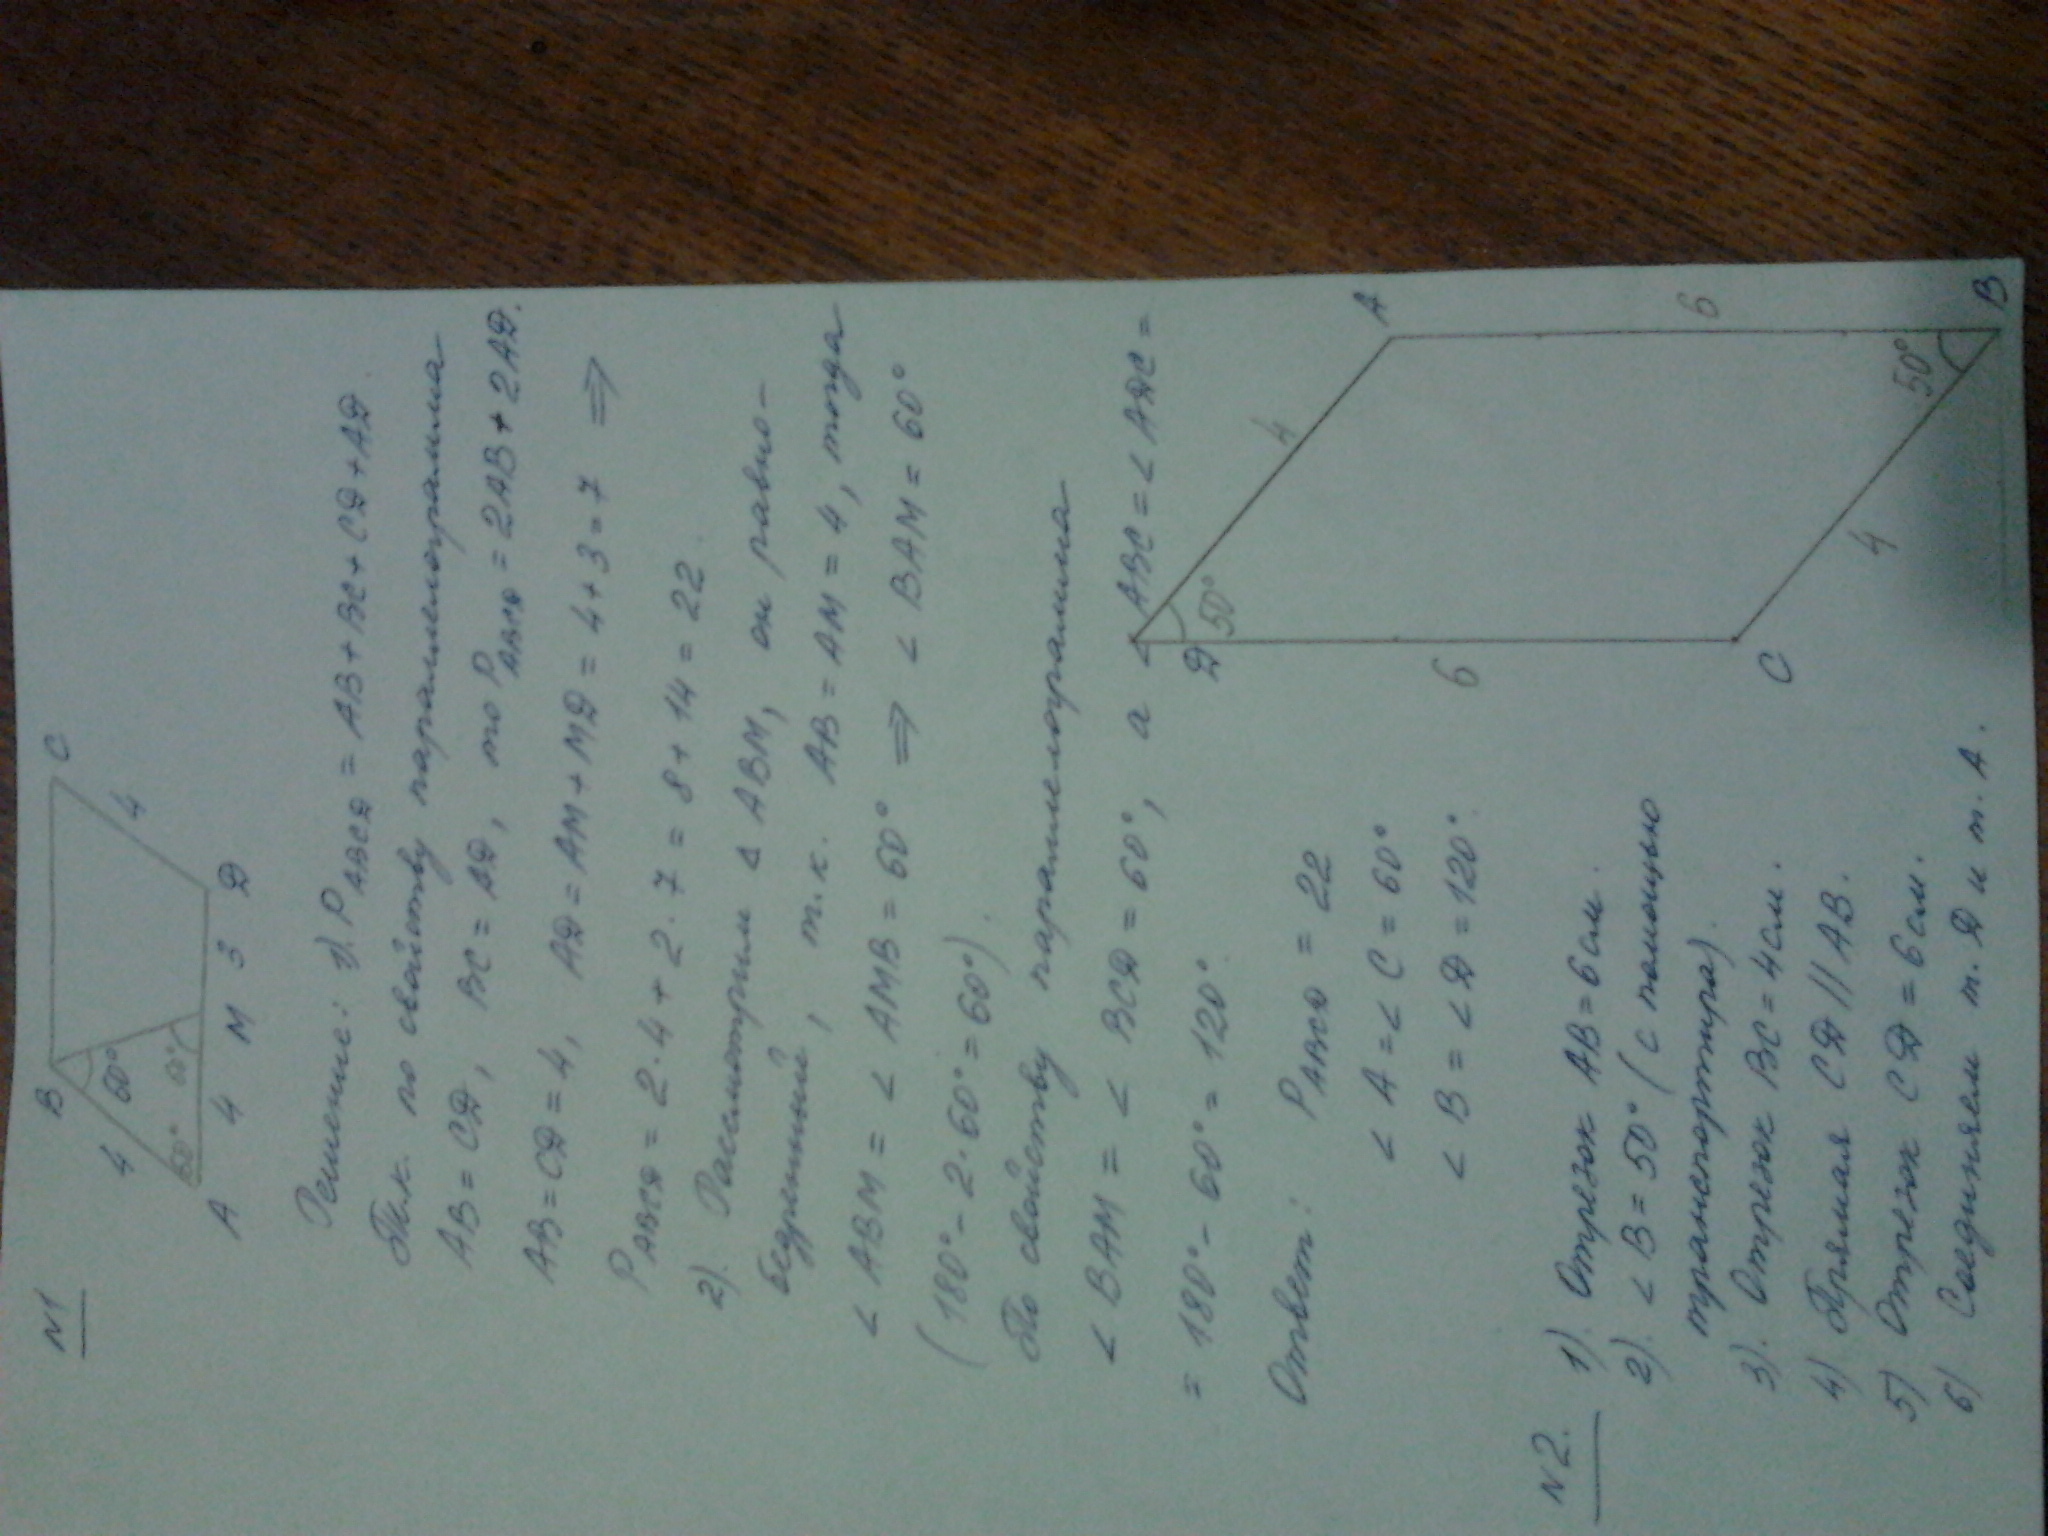 N1
B
C
4
60°
4
60°
60°
A
4
M
3
D
Решение: 1). P ABCD = AB + BC + CD + AD.
Т.к. по свойству параллелограмма
AB = CD, BC = AD, то P ABCD = 2AB + 2AD.
AB = CD = 4, AD = AM + MD = 4 + 3 = 7 ⇒
P ABCD = 2·4 + 2·7 = 8 + 14 = 22.
2). Рассмотрим Δ ABM, он равно-
бедренный, т.к. AB = AM = 4, тогда
∠ ABM = ∠ AMB = 60° ⇒ ∠ BAM = 60°
(180° - 2·60° = 60°).
По свойству параллелограмма
∠ BAM = ∠ BCD = 60°, а ∠ ABC = ∠ ADC =
= 180° - 60° = 120°.
Ответ: P ABCD = 22
∠ A = ∠ C = 60°
∠ B = ∠ D = 120°.
N2.
1). Отрезок AB = 6 см.
2). ∠ B = 50° (с помощью
транспортира).
3). Отрезок BC = 4 см.
4) Прямая CD || AB.
5) Отрезок CD = 6 см.
6) Соединяем т. D и т. A.
D
50°
4
A
6
6
C
4
50°
B